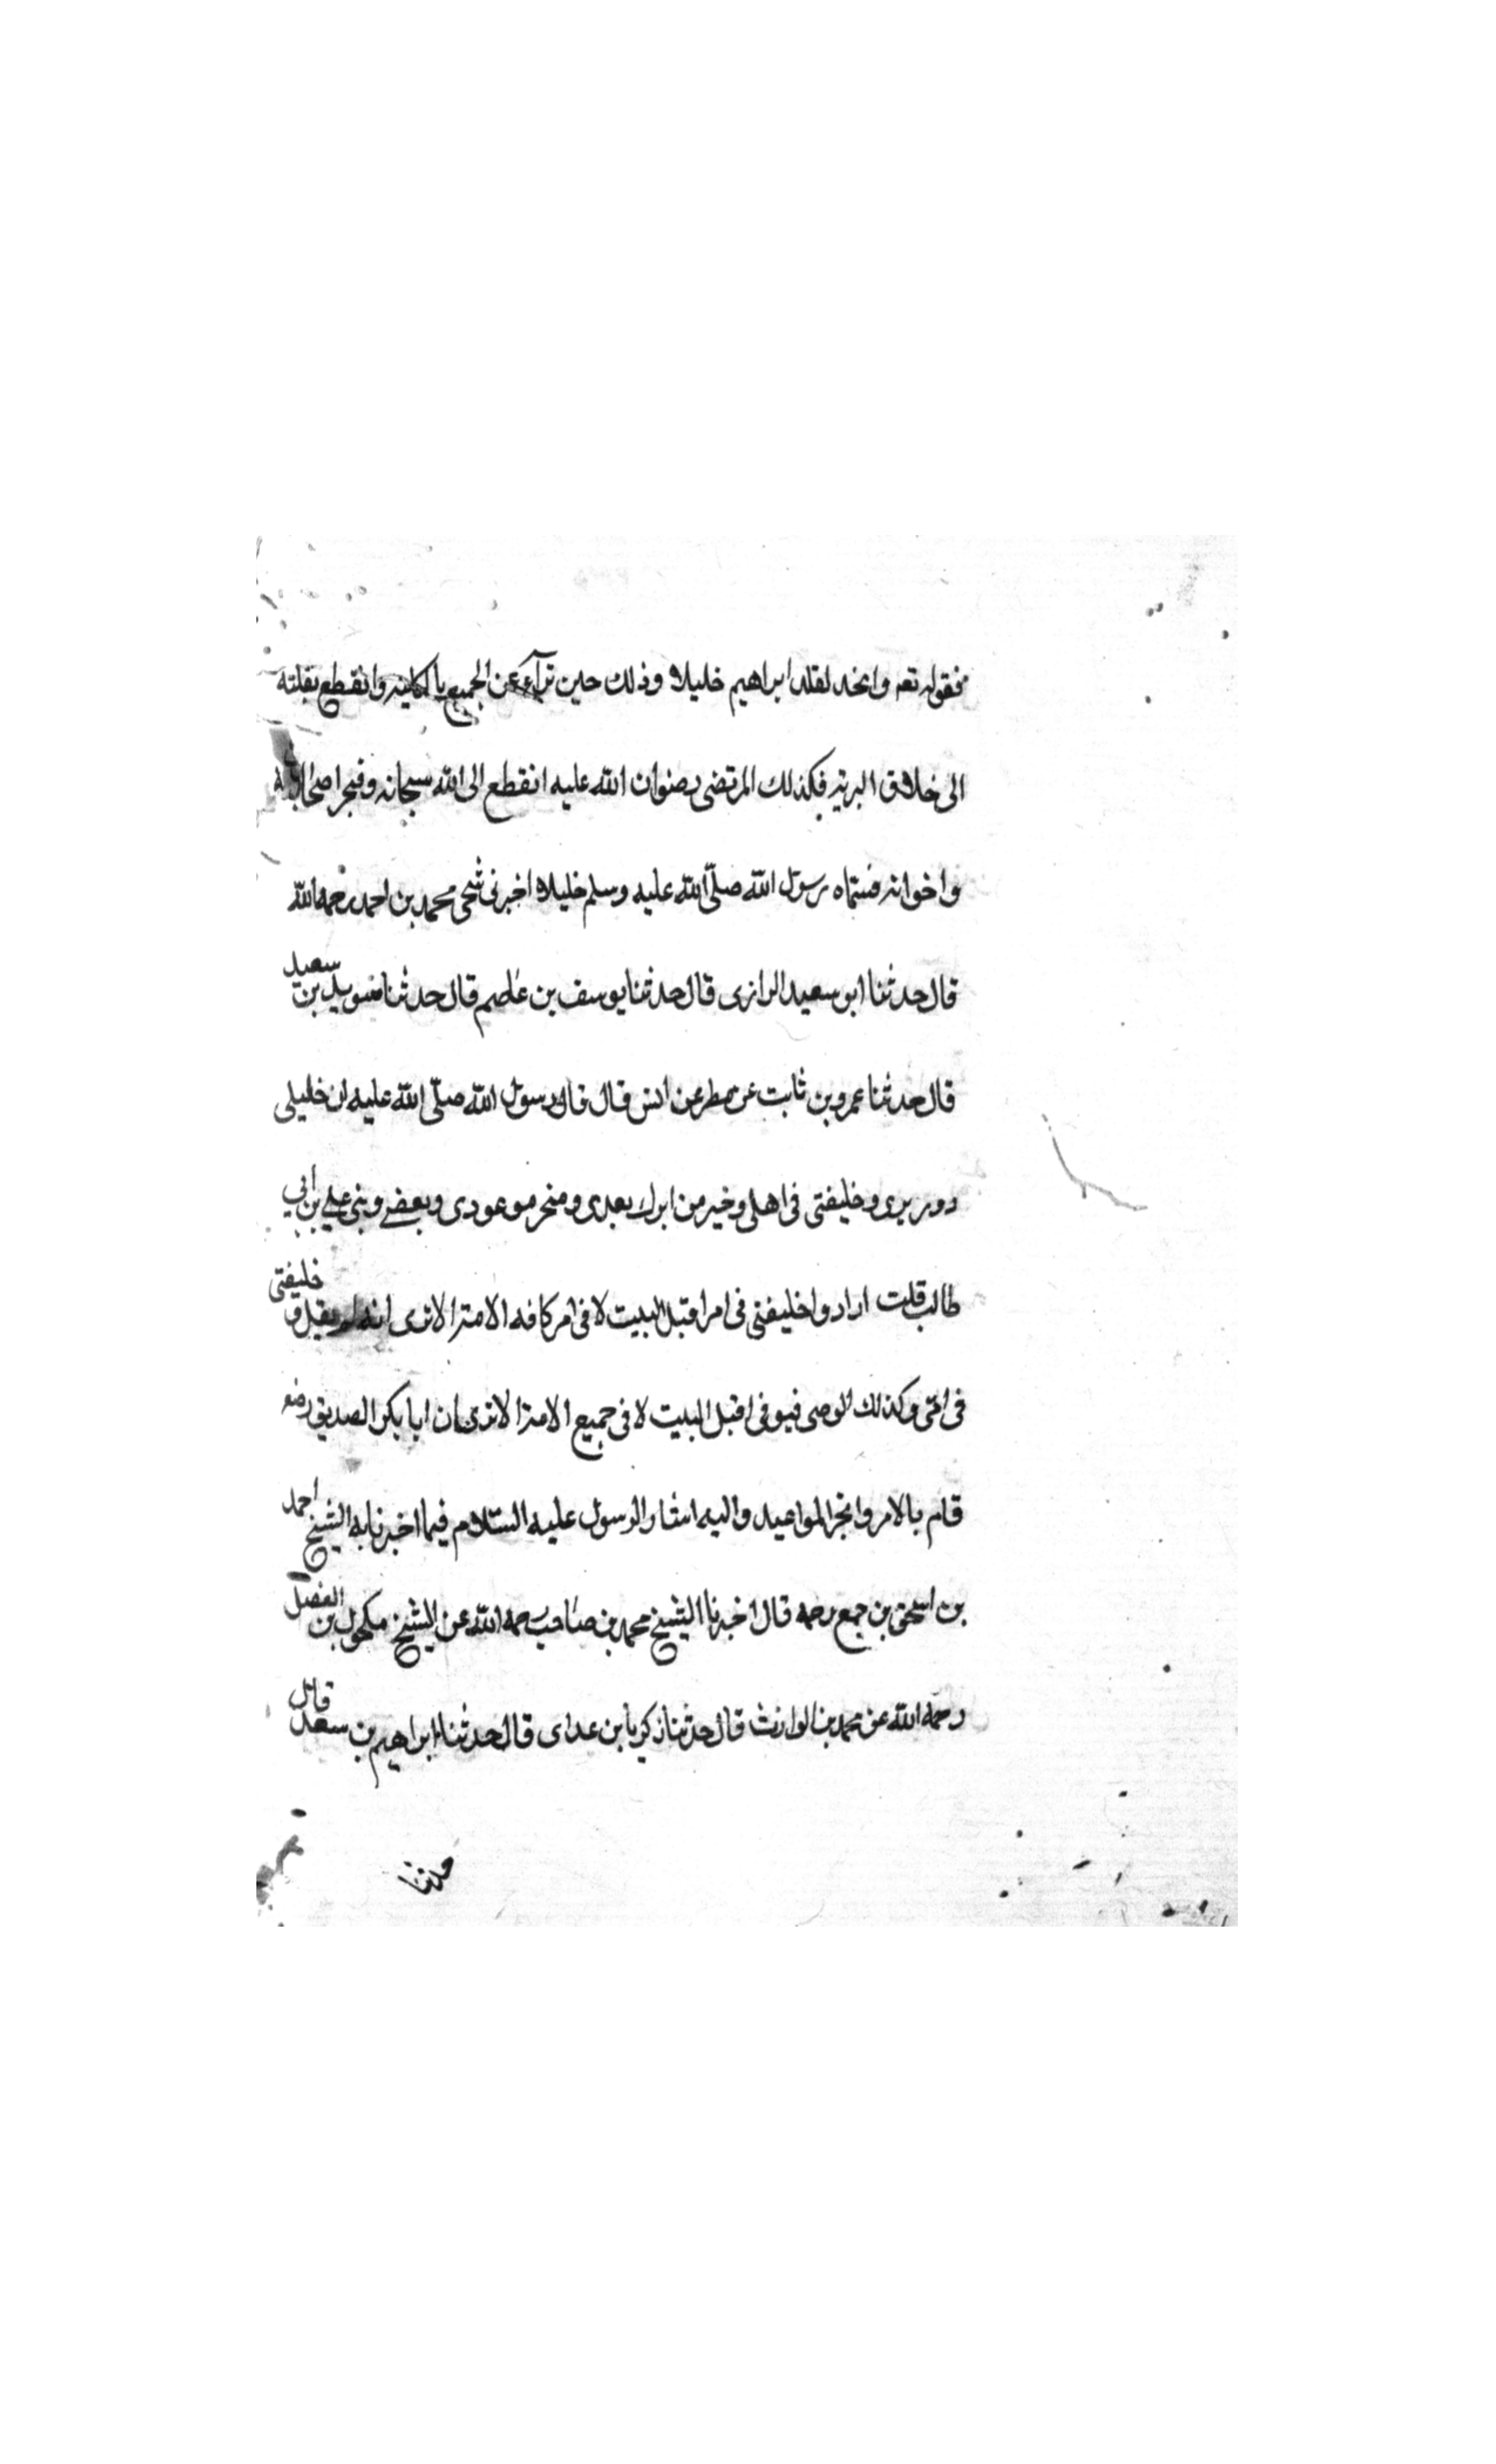 فقوله تعه واتخد لقله ابراهيم خليلا وذلك حين تراءء عن الجميع بالكلية وانقطع بقلته
الى خلاق البرية فكذلك المرتضى رضوان الله عليه انقطع الى الله سبحانه وفجر اصحابه
واخوانه فسماه رسول الله صلى الله عليه وسلم خليلا اخبرنى شحى محمد بن احمد رحمه الله
قال حدثنا ابو سعيد الرازى قال حدثنا يوسف بن عاصم قال حدثنا سويد بن سعيد
قال حدثنا عمرو بن ثابت عن مطر عن انس قال قال رسول الله صلى الله عليه ان خليلى
ووريرى وخليفتى فى اهلى وخير من اترك بعدى ومنجر موعودى ويعضے وبنى علي بن ابي
طالب قلت اراد واخليفتى فى امر اقبل البيت لا فى امر كافه الامة الا ترى انه لم يقل و خليفتى
فى امتى وكذلك الوصى فيو فى اقبل البيت لا فى جميع الامة الا ترى ان ابا بكر الصديق رضه
قام بالامر وانجر المواعيد واليه اشار الرسول عليه السلام فيما اخبرنا به الشيخ احمد
بن اسحق بن جمع رحمه قال اخبرنا الشيخ محمد بن صاحب رحمه الله عن الشيخ مكحول بن الفضل
رحمه الله عن محمد بن الوارث قال حدثنا زكريا بن عداى قال حدثنا ابراهيم بن سعد قال
حدثنا